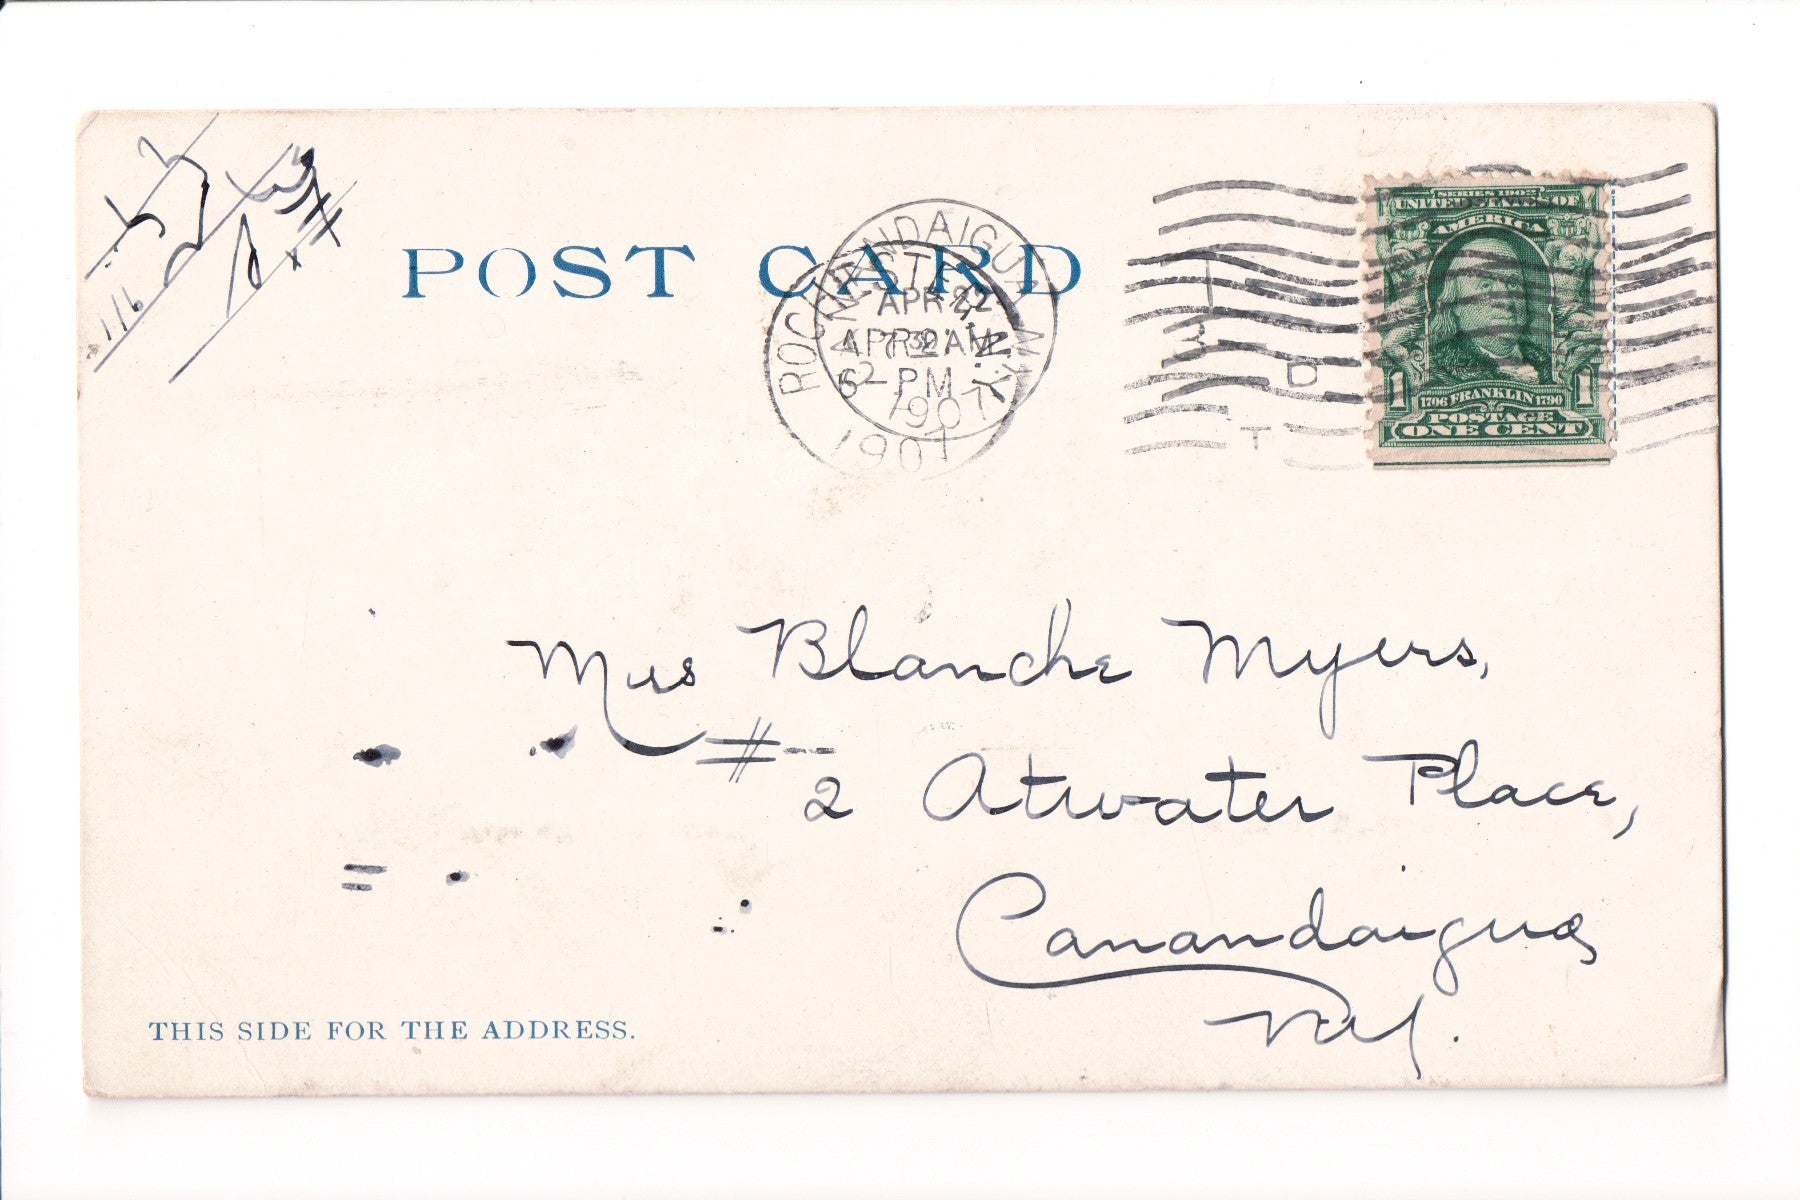 POST CARD
ROCHESTER, N.Y.
APR 21
6-PM
1907
CANANDAIGUA N.Y.
APR 22
7-30 AM
1907
SERIES 1902
UNITED STATES OF
AMERICA
1 1
1706 FRANKLIN 1790
POSTAGE
ONE CENT
Miss Blanche Myers,
#
2 Atwater Place,
Canandaigua
N.Y.
THIS SIDE FOR THE ADDRESS.